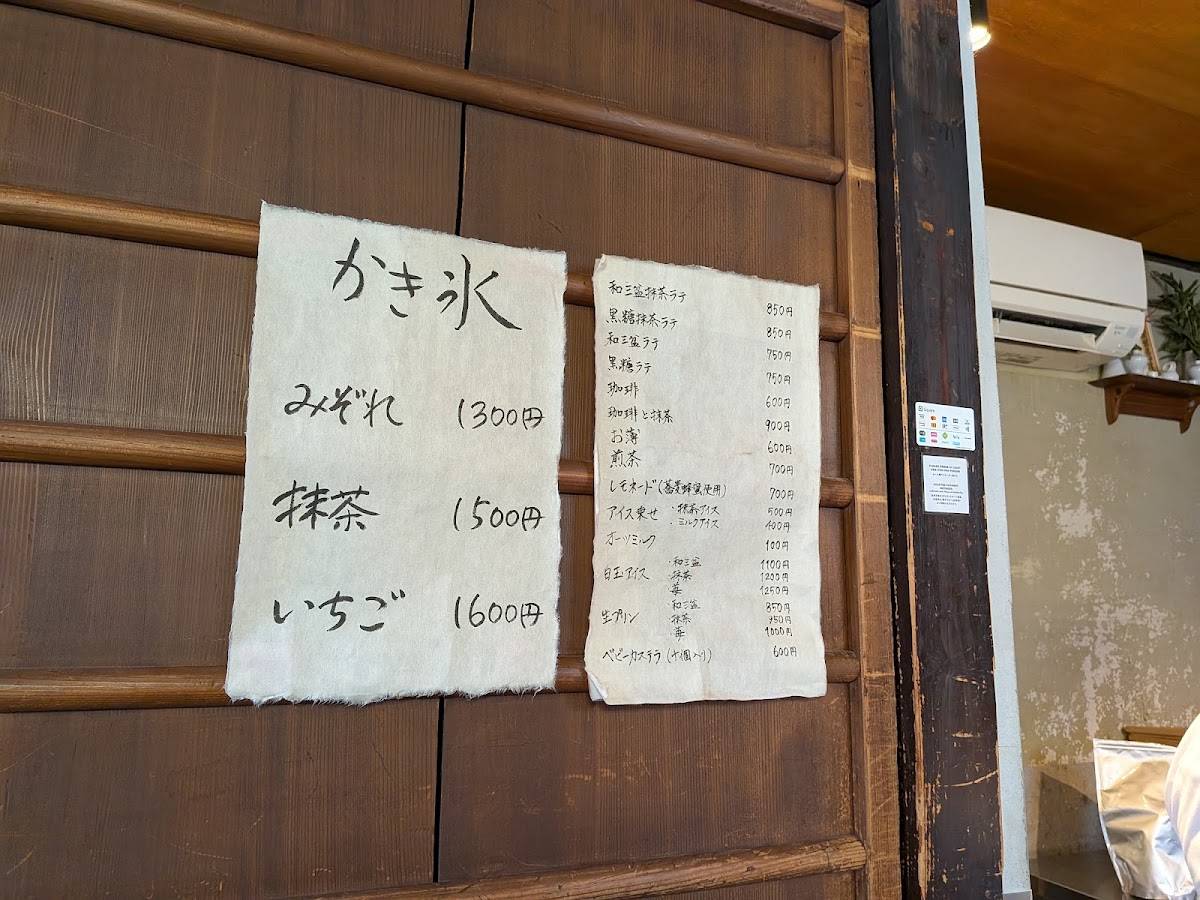 かき氷
みぞれ 1300円
抹茶 1500円
いちご 1600円
和三盆抹茶ラテ 850円
黒糖抹茶ラテ 850円
和三盆ラテ 750円
黒糖ラテ 750円
珈琲 600円
珈琲と抹茶 900円
お薄 600円
煎茶 700円
レモネード(蕎麦蜂蜜使用) 700円
アイス乗せ ・抹茶アイス 500円
・ミルクアイス 400円
オーツミルク 100円
白玉アイス ・和三盆 1100円
・抹茶 1200円
・苺 1250円
生プリン ・和三盆 850円
・抹茶 950円
・苺 1000円
ベビーカステラ(十個入り) 600円